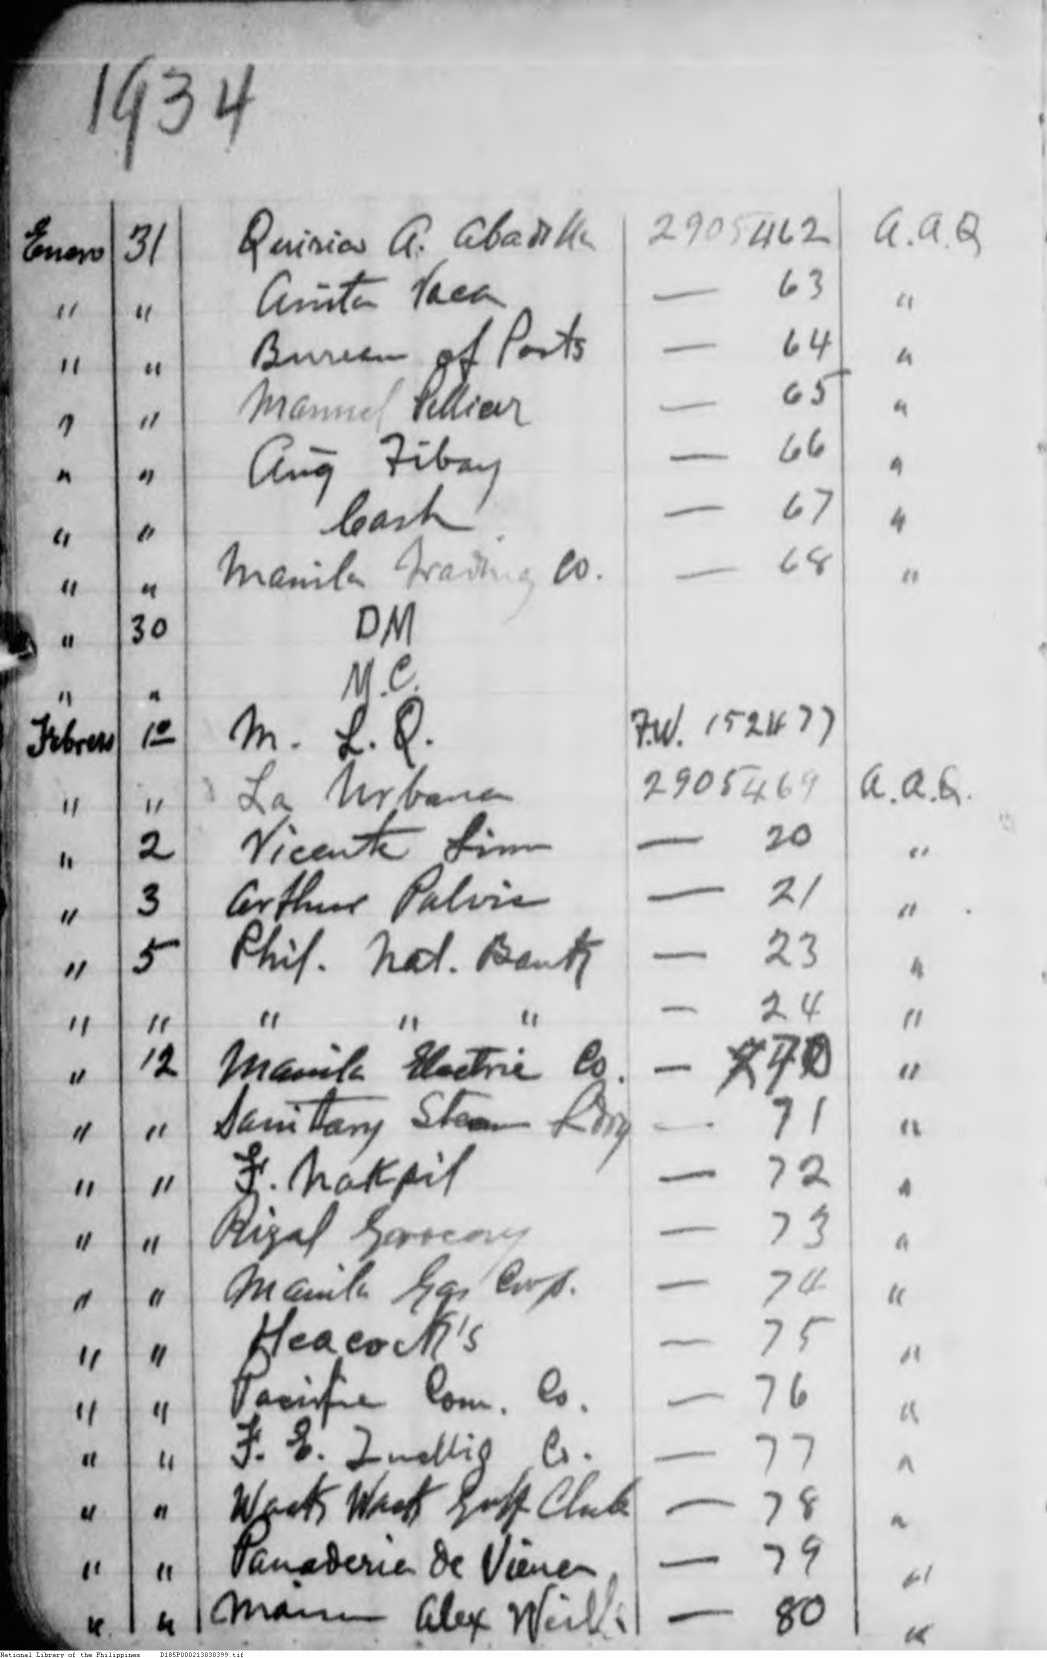 1934
Enero 31 Quirico A. Abadilla 2905462 A.A.Q
" " Anita Vaca — 63 "
" " Bureau of Posts — 64 "
" " Manuel Pellicer — 65 "
" " Aug Tibay — 66 "
" " Cash — 67 "
" " Manila Trading Co. — 68 "
" 30 DM
" " M.C.
Febrero 1º M. L. Q. F.W. 152477
" " La Urbana 2905469 A.A.Q.
" 2 Vicente Lim — 20 "
" 3 Arthur — 21 "
" 5 Phil. Nat. Bank — 23 "
" " " " " — 24 "
" 12 Manila Electric Co. — 70 "
" " Sanitary Steam Ldry — 71 "
" " F. Nakpil — 72 "
" " Rizal Grocery — 73 "
" " Manila Gas Corp. — 74 "
" " Heacock's — 75 "
" " Pacific Com. Co. — 76 "
" " F. E. Zuellig Co. — 77 "
" " Wack Wack Golf Club — 78 "
" " Panaderia de Viena — 79 "
" " Alex — 80 "
National Library of the Philippines D185P000213838399.tif